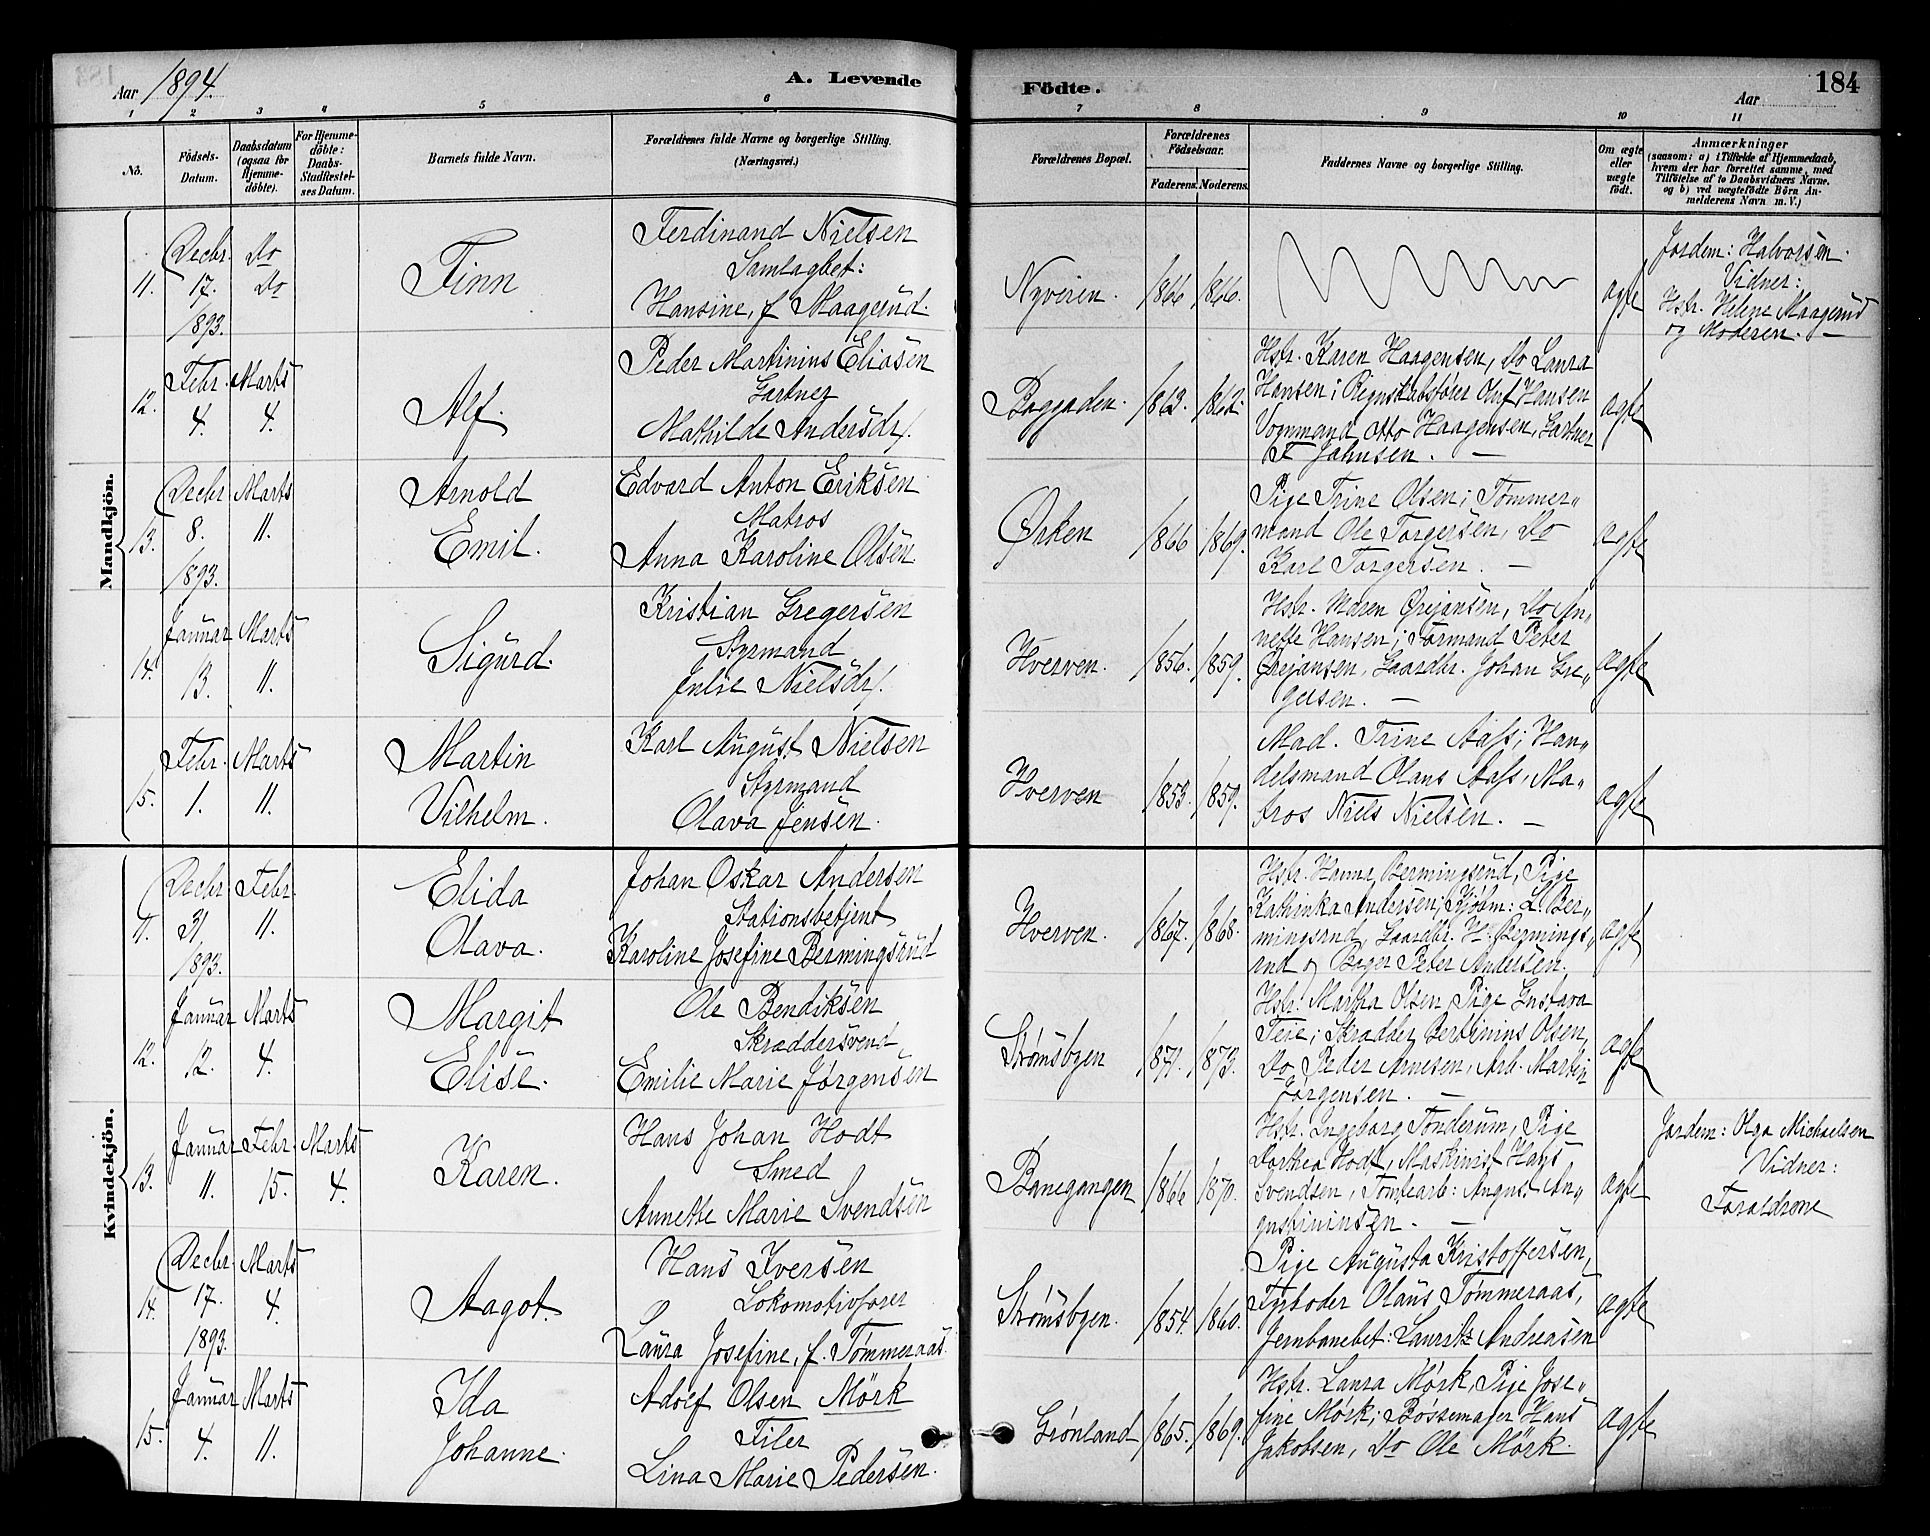 Aar 1894.
A. Levende
Födte.
Aar
184
1 2 3 4 5 6 7 8 9 10 11
No.
Födsels-
Datum.
Daabsdatum
(ogsaa for
Hjemme-
døbte).
For Hjemme-
döbte:
Daabs-
Stadfæstel-
ses Datum.
Barnets fulde Navn.
Forældrenes fulde Navne og borgerlige Stilling.
(Næringsvei.)
Forældrenes Bopæl.
Forældrenes
Födselsaar.
Faderens. Moderens.
Faddernes Navne og borgerlige Stilling.
Om ægte
eller
uægte
födt.
Anmærkninger
(saasom: a) i Tilfælde af Hjemmedaab,
hvem der har forrettet samme, med
Tilföielse af to Daabsvidners Navne,
og b) ved uægtefödte Börn An-
melderens Navn m. V.)
Mandkjön.
11.
Decbr.
17.
1893.
Do
Do
Finn
Ferdinand Nielsen
Samlagbet:
Hansine, f. Maagerud.
Nyveien.
1866 1866.
ægte
Jordem: Halvorsen.
Vidner:
Hstr. Helene Maagerud
og Moderen. —
12.
Febr.
4.
Marts
4.
Alf.
Peder Martinius Eliasen
Gartner
Mathilde Andersdr.
Baggaden.
1863. 1862.
Hstr. Karen Haagensen, Do Laura
Hansen; Regnskabsfører Oluf Hansen
Vognmand Otto Haagensen, Gartner
F Johnsen. —
ægte
13.
Decbr.
8.
1893.
Marts
11.
Arnold
Emil.
Edvard Anton Eriksen
Matros
Anna Karoline Olsen
Ørken
1866 1869.
Pige Trine Olsen; Tømmer„
mand Ole Torgersen, Do
Karl Torgersen. —
ægte
14.
Januar
13.
Marts
11.
Sigurd.
Kristian Gregersen
Styrmand
Julie Nielsdr.
Hverven.
1856. 1859.
Hstr. Maren Ørejansen, Do An„
nette Hansen; Formand Peter
Ørejansen, Gaardbr. Johan Gre„
gersen. —
ægte
15.
Febr.
1.
Marts
11.
Martin
Vilhelm.
Karl August Nielsen
Styrmand
Olava Jensen.
Hverven
1853. 1859.
Mad. Trine Aass; Han„
delsmand Olaus Aass, Ma„
tros Niels Nielsen. —
ægte
Kvindekjön.
11.
Decbr.
31
1893.
Febr.
11.
Elida
Olava.
Johan Oskar Andersen
Stationsbetjent
Karoline Josefine Bermingsrud
Hverven.
1867. 1868.
Hstr. Hanne Bermingsrud, Pige
Kathinka Andersen; Kjøbm: L. Ber„
mingsrud, Gaardbr. H. Bermings„
rud og Bager Peter Andersen.
ægte
12.
Januar
12.
Marts
4.
Margit
Elise.
Ole Bendiksen
Skræddersvend
Emilie Marie Jørgensen
Strømsbyen
1871. 1873.
Hstr. Martha Olsen, Pige Gustava
Teie; Skrædder Bertinius Olsen,
Do Peder Arnesen, Arb. Martin
Jørgensen. —
ægte
13.
Januar
11.
Febr.
15.
Marts
4.
Karen.
Hans Johan Hodt
Smed
Annette Marie Svendsen
Banegangen
1866 1870.
Hstr. Ingeborg Tonderum, Pige
Dorthea Hodt, Maskinist Hans
Svendsen, Tomtearb: August An„
gustininsen. —
ægte
Jordem: Olga Michaelsen
Vidner:
Forældrene
14.
Decbr.
17.
1893.
Marts
4.
Aagot.
Hans Iversen
Lokomotivfører
Laura Josefine, f. Tømmeraas.
Strømsbyen.
1854. 1860.
Pige Augusta Kristoffersen,
Fyrbøder Olaus Tømmeraas,
Jernbanebet: Lauritz Andreasen
ægte
15.
Januar
4.
Marts
11.
Ida
Johanne.
Adolf Olsen Mörk
Filer
Lina Marie Pedersen.
Grønland
1865. 1869.
Hstr. Laura Mørk, Pige Jose„
fine Mørk; Bøssemager Hans
Jakobsen, Do Ole Mørk.
ægte